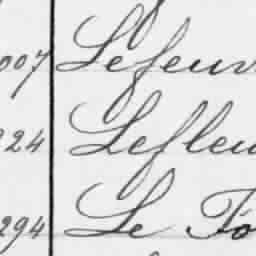 007 Lefeuv
24 Lefleu
294 Le Fo